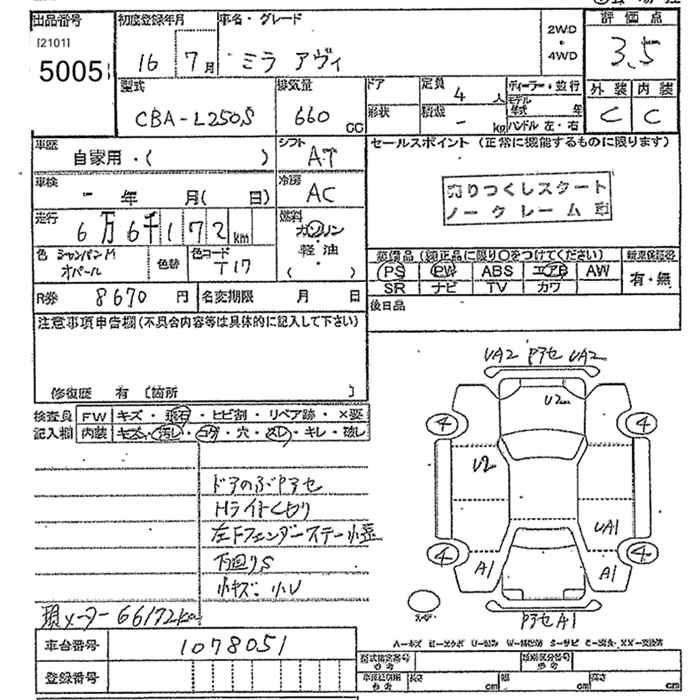 出品番号
[2101]
5005
初度登録年月
16 7月
車名・グレード
ミラ アヴィ
2WD
・
4WD
評価点
3.5
外装 内装
C C
型式
CBA-L250S
排気量
660
CC
ドア
形状
定員
4 人
積載
- kg
ディーラー・並行
モデル年式 年
ハンドル 左・右
車歴
自家用・( )
シフト
AT
車検
- 年 月( 日)
冷房
AC
走行
6万6千172km
燃料
ガソリン
・
軽油
( )
色 シャンパンM
オパール
色替
色コード
T17
R券 8670 円
名変期限 月 日
セールスポイント (正常に機能するものに限ります)
売りつくしスタート
ノークレーム車
装備品 (純正品に限り○をつけてください)
PS PW ABS エアB AW
SR ナビ TV カワ
新車保証書
有・無
後日品
注意事項申告欄(不具合内容等は具体的に記入して下さい)
修復歴 有 [箇所 ]
検査員
記入欄
FW キズ・飛石・ヒビ割・リペア跡・×要
内装 キズ・汚レ・コゲ・穴・スレ・キレ・破レ
ドアのぶPアセ
Hライトくもり
左Fフェンダーステー小歪
下回りS
小キズ 小U
現メーター66172km
車台番号 1078051
登録番号
UA2 Pアセ UA2
U2
4 4
U2
UA1
4 4
A1 A1
Pアセ A1
A-キズ E-エクボ U-凹ミ
型式指定番号
類別区分番号
長さ cm 幅 cm 高さ cm